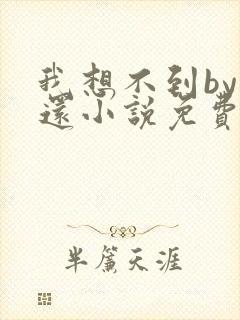 我想不到by
還小說免費
半簾天涯